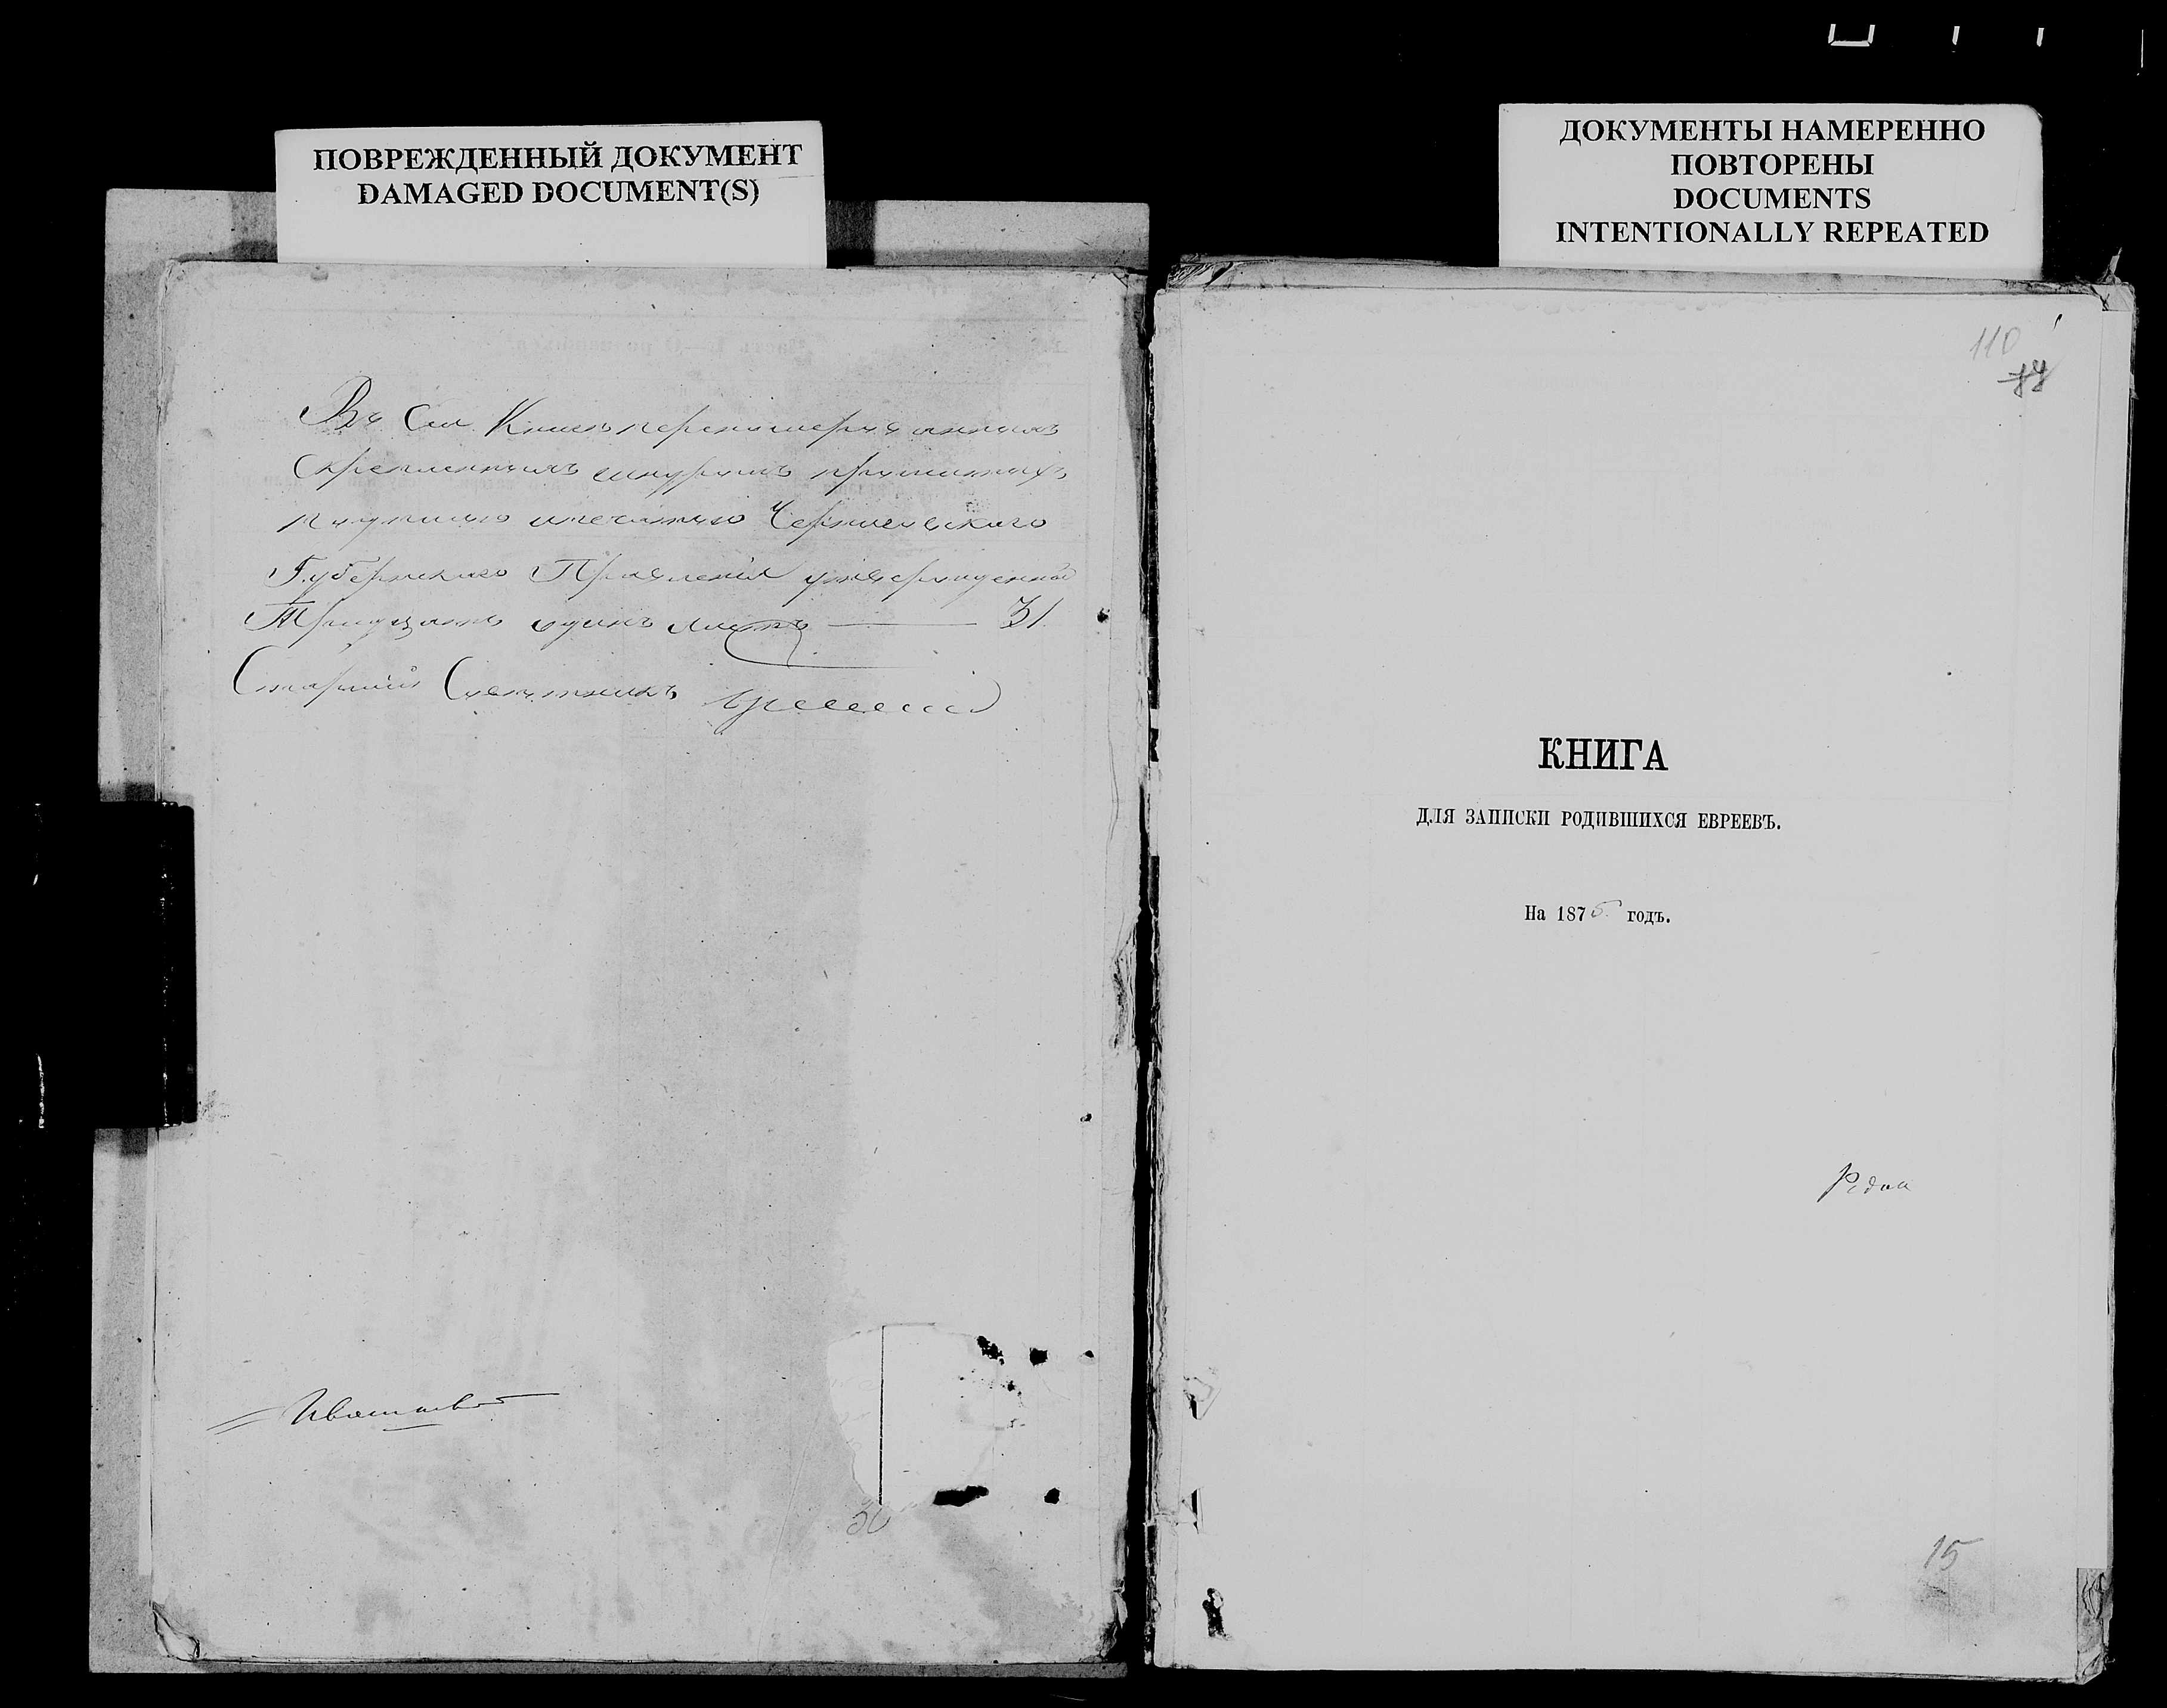 ПОВРЕЖДЕННЫЙ ДОКУМЕНТ
DAMAGED DOCUMENT(S)
Въ Сей Книгѣ перенумерованныхъ
скрепленныхъ шнуромъ прошитыхъ
и печатью Черниговскаго
Губернскаго Правленія утвержденныхъ
Тридцать одинъ листъ 31
Старшій Совѣтникъ
30
ДОКУМЕНТЫ НАМЕРЕННО
ПОВТОРЕНЫ
DOCUMENTS
INTENTIONALLY REPEATED
110
КНИГА
ДЛЯ ЗАПИСКИ РОДИВШИХСЯ ЕВРЕЕВЪ.
На 1875 годъ.
15